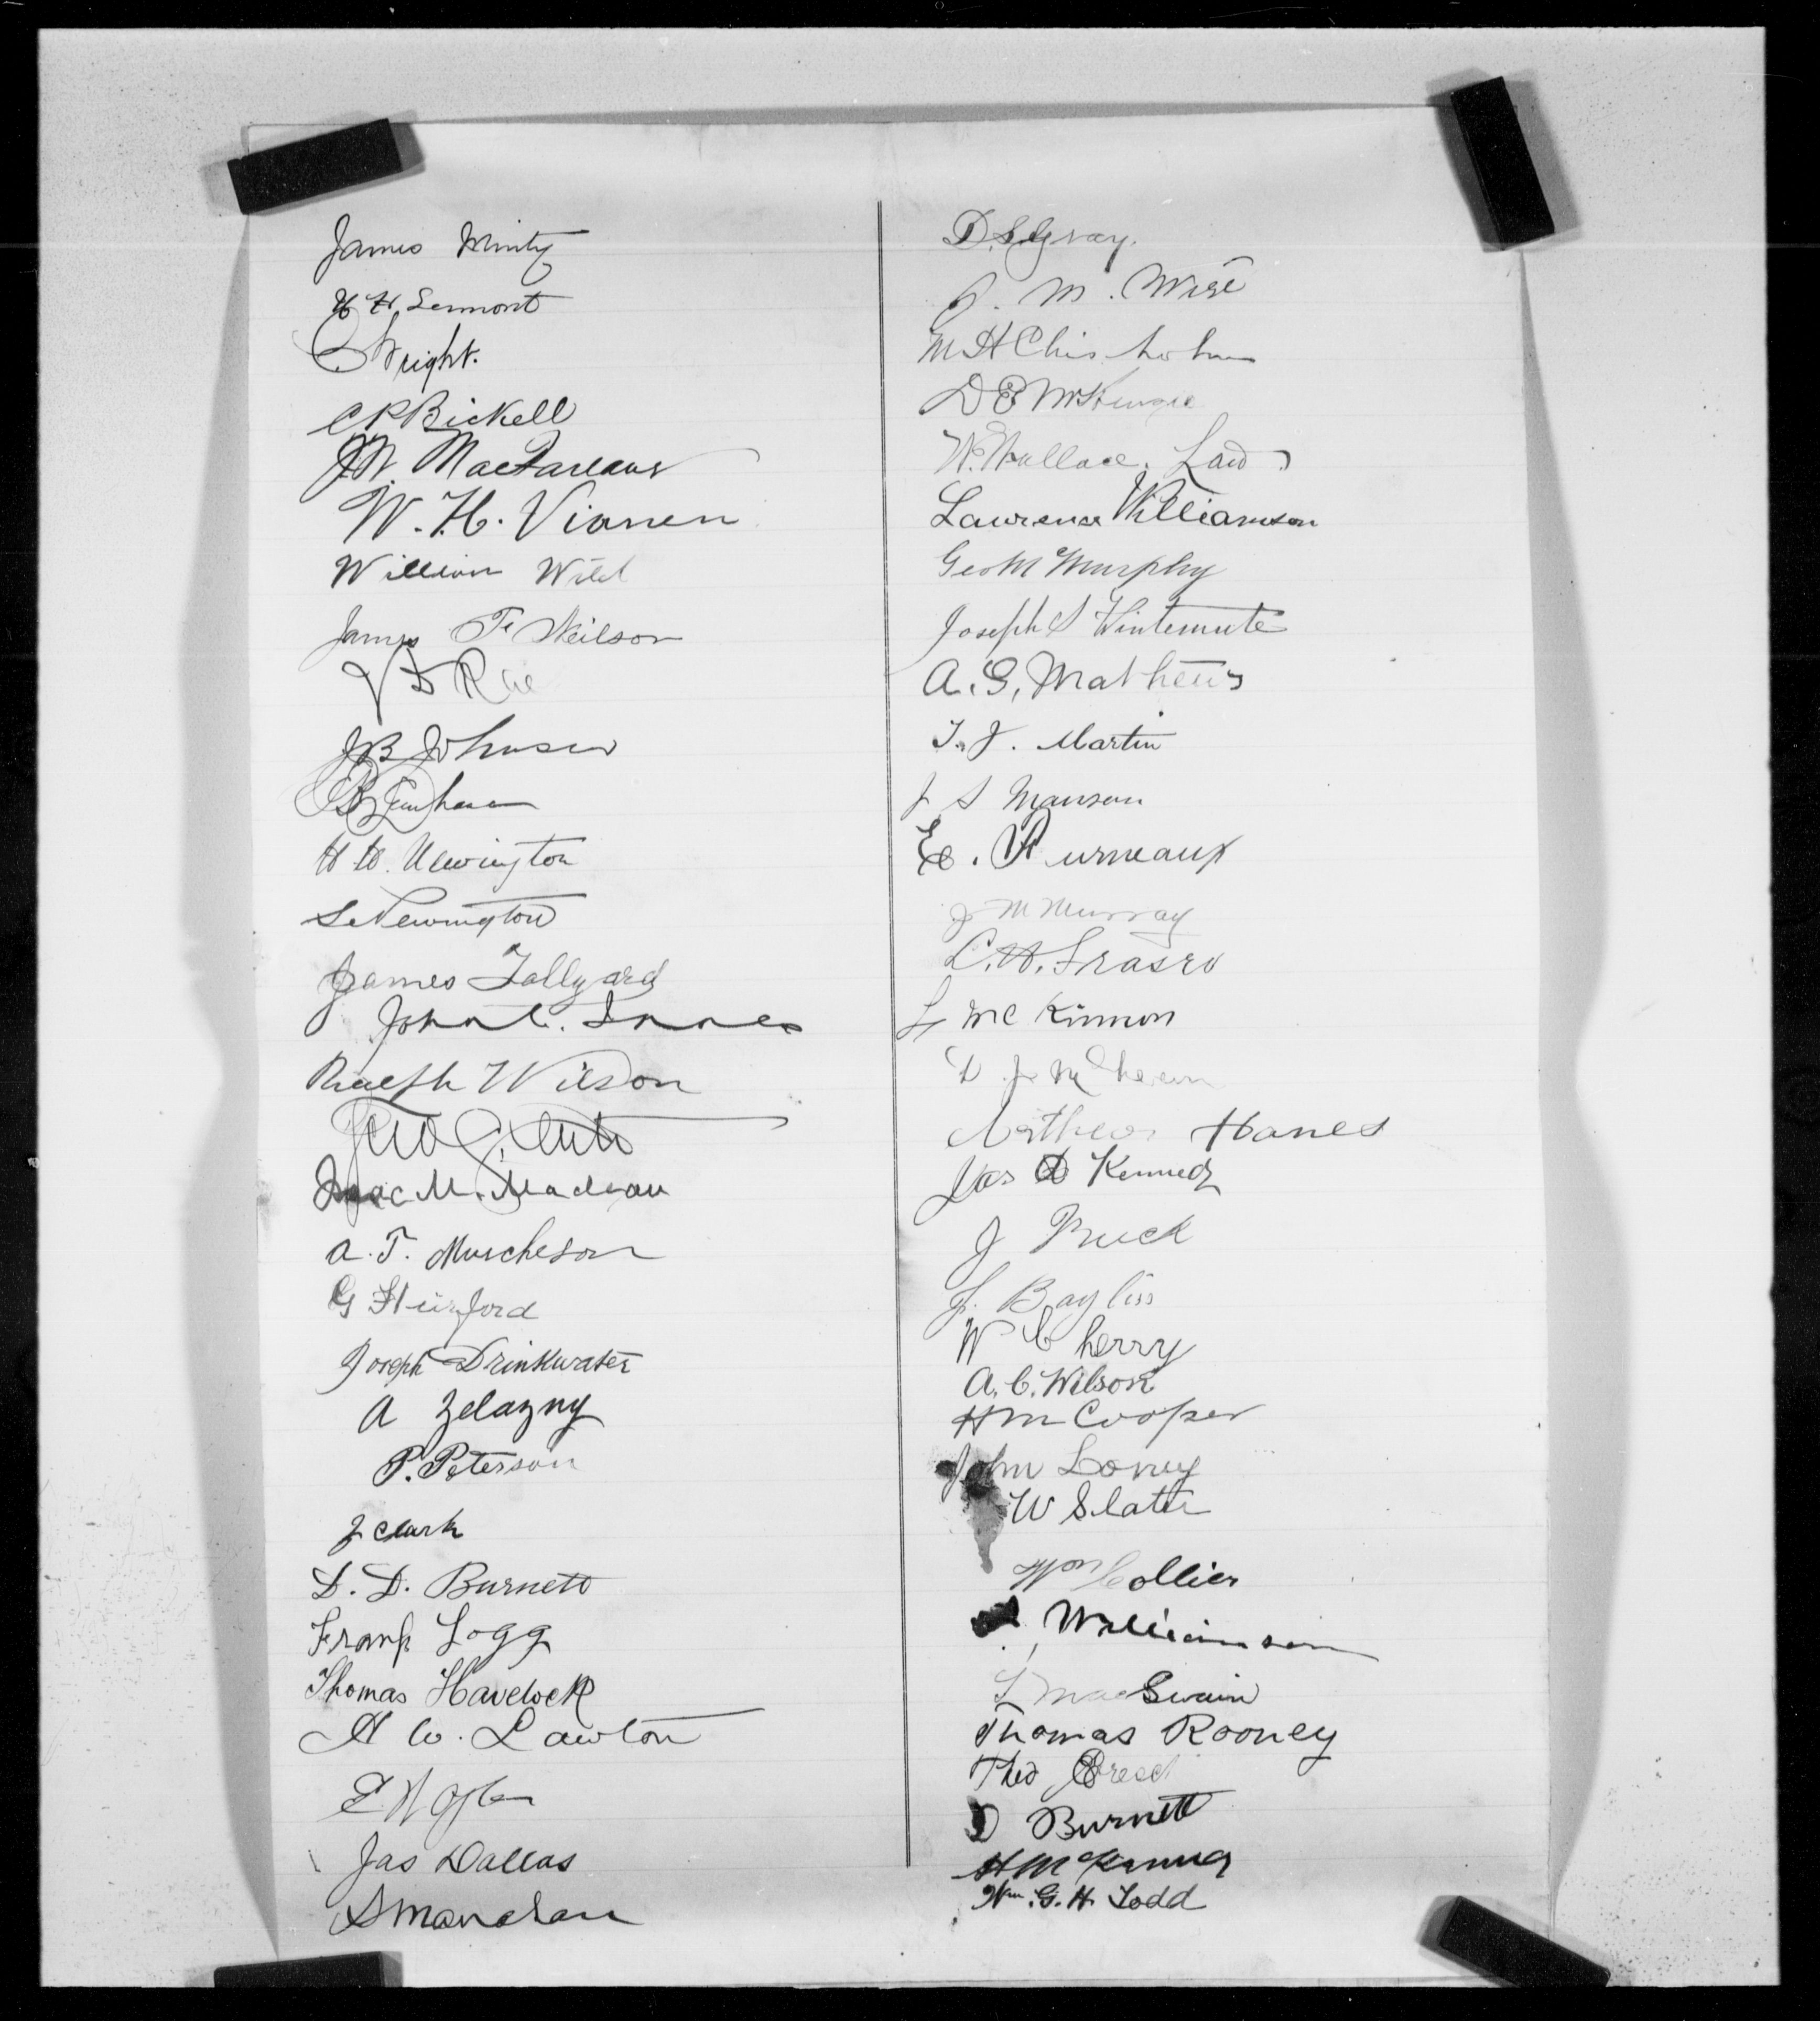 James Minty
H. H. Lennont
Wright.
C P Bickell
J W. MacFarlane
W. H. Vianen
William Wild
James F. Neilson
D Rae
J B Johnson
H W. Newington
S. Newington
James Tallyard
John C. Innes
Ralph Wilson
M.
A. T. Murcheson
G
Joseph Drinkwater
A Zelazny
P. Peterson
J Clark
D. D. Burnett
Frank Logg
Thomas Havelock
A W. Lawton
E
Jas Dallas
D. S. Gray.
J. M. Wise
M H Chisholm
D E McKenzie
W. Wallace. Law
Lawrence Williamson
Geo M Murphy
Joseph S Wintemute
A. G. Mathews
T. J. Martin
J S Manson
E. Furneaux
J M Murray
C. H. Fraser
L McKinnon
D J
Hanes
Jas D Kennedy
J
J. Bayliss
W Cherry
A. C. Wilson
H M Cooper
John Loney
W Slater
Wm Collier
Williamson
L MacSwain
Thomas Rooney
Theo
D Burnett
H McKenna
Wm. G. H. Todd